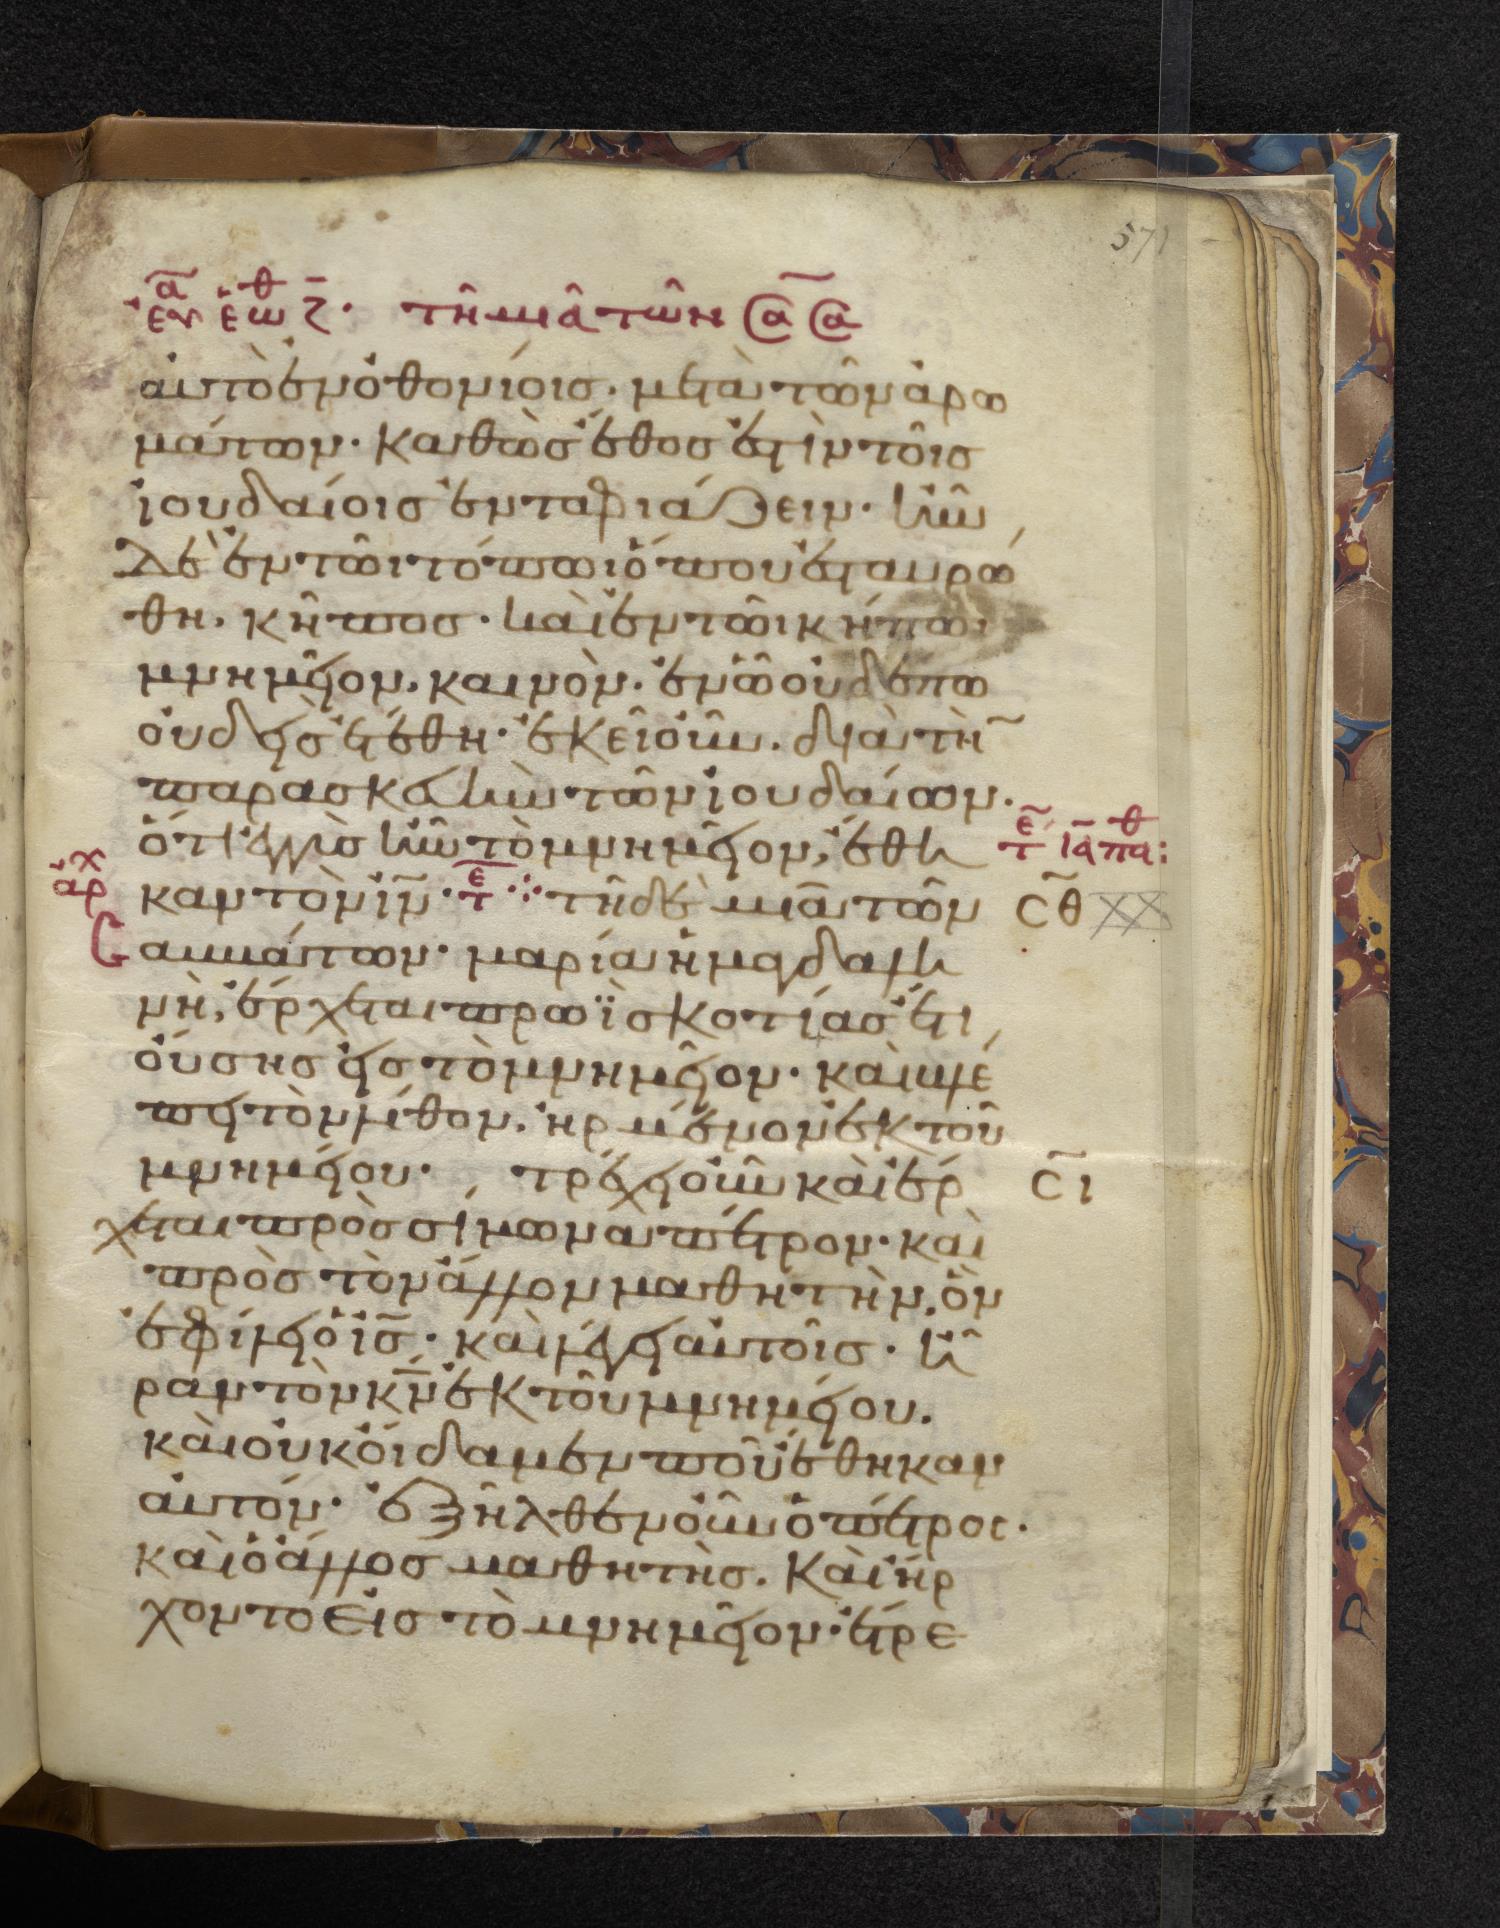 571
ε̃υα ἑωθ ζ̄· τῆ μιᾶ τῶν σα̃ σα
αυτὸ ἐν ὀθονίοις· μετὰ τῶν ἀρω
μάτων· καθὼς ἔθος ἐστὶν τοῖς
ἰουδαίοις ἐνταφιάζειν· ἦν
δὲ ἐν τῶι τόπωι ὅπου ἐσταυρώ
θη· κῆπος· καὶ ἐν τῶι κήπωι
μνημεῖον, καινὸν· ἐν ὧ οὐδέπω
οὐδεὶς ἐτέθη· ἐκεῖ οὖν. διὰ τὴ̃
παρασκευὴν τῶν ἰουδαίων·
ὅτι ἐγγὺς ἦν τὸ μνημεῖον, ἔθη
τε̃ ια̃ πα θ:
αρχ
καν τὸν ιν̃· τε̃ ·:· τῆ δὲ μιᾶ τῶν
σ̃θ XX
σαββάτων· μαρία ἡ μαγδαλη
νὴ, ἔρχεται πρωῒ σκοτίας ἔτι
οὔσης εἰς τὸ μνημεῖον· καὶ βλέ
πει τὸν λίθον, ἠρμένον ἐκ τοῦ
μνημείου· τρέχει οὖν καὶ ἔρ
σ̃ι
χεται πρὸς σίμωνα πέτρον· καὶ
πρὸς τὸν ἄλλον μαθητὴν, ὃν
ἐφίλει ὁ ις̃· καὶ λέγει αυτοῖς· ἦ
ραν τὸν κν̄ ἐκ τοῦ μνημείου.
καὶ οὐκ οἴδαμεν ποῦ ἔθηκαν
αυτόν· ἐξῆλθεν οὖν ὁ πέτρος·
καὶ ὁ ἄλλος μαθητὴς. Καὶ ἤρ
χοντο εἰς τὸ μνημεῖον· ἔτρε